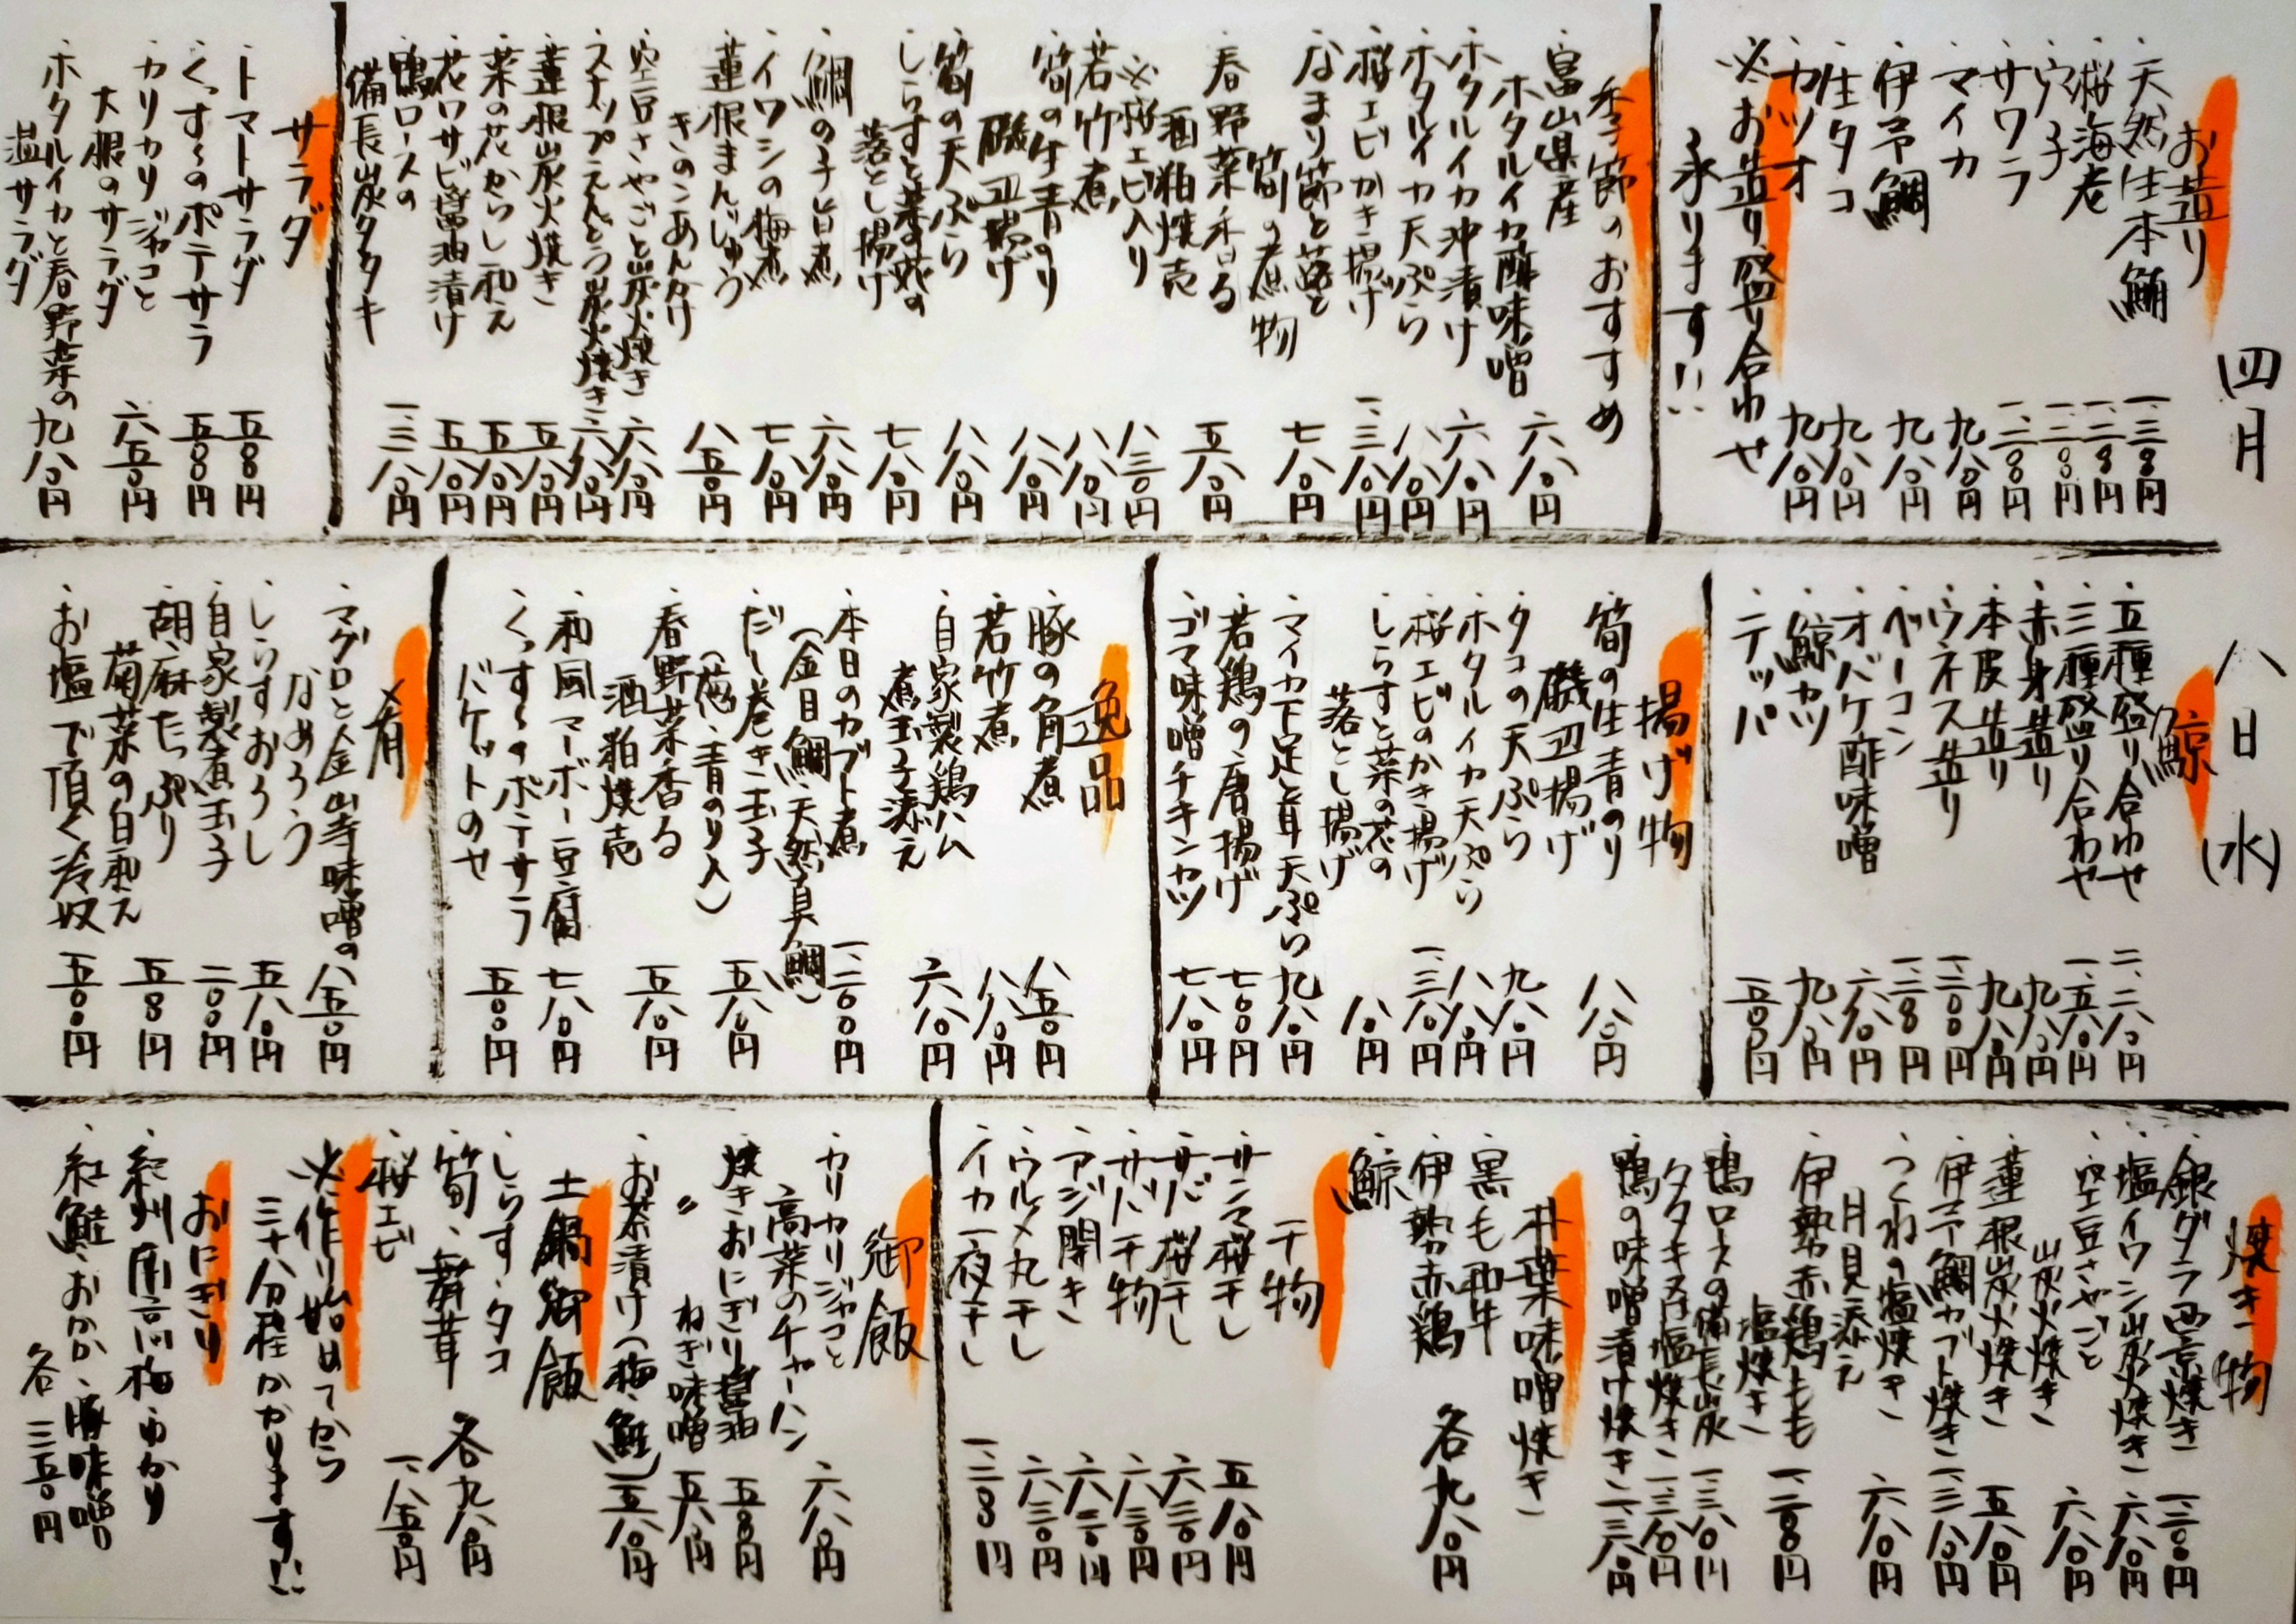 四月
八日(水)
お造り
・天然生本鮪
・桜海老
・穴子
・サワラ
・マイカ
・伊予鯛
・生タコ
・カツオ
※お造り盛り合わせ
承ります!!
季節のおすすめ
・富山県産
ホタルイカ酢味噌 六八〇円
・ホタルイカ沖漬け 六八〇円
・ホタルイカ天ぷら 八八〇円
・桜エビかき揚げ 一、三八〇円
・なまり節と蕗と
筍の煮物 七八〇円
・春野菜香る
酒粕焼売 五八〇円
※桜エビ入り 八三〇円
・若竹煮 八八〇円
・筍の生青のり
磯辺揚げ 八八〇円
・筍の天ぷら 八八〇円
・しらすと菜の花の
落とし揚げ 七八〇円
・鯛の子旨煮 六八〇円
・イワシの梅煮 七八〇円
・蓮根まんじゅう
きのこあんかけ 八五〇円
・空豆さやごと炭火焼き 六八〇円
・スナップえんどう炭火焼き 六八〇円
・蓮根炭火焼き 五八〇円
・菜の花からし和え 五八〇円
・花ワサビ醤油漬け 五八〇円
・鴨ロースの
備長炭タタキ 一、三八〇円
サラダ
・トマトサラダ 五〇〇円
・くっすぅのポテサラ 五〇〇円
・カリカリジャコと
大根のサラダ 六五〇円
・ホタルイカと春野菜の
温サラダ 九八〇円
鯨
・五種盛り合わせ 二、二八〇円
・三種盛り合わせ 一、五八〇円
・赤身造り 九八〇円
・本皮造り 九八〇円
・ウネス造り
・ベーコン
・オバケ酢味噌 六八〇円
・鯨カツ 九八〇円
・テッパ
揚げ物
・筍の生青のり
磯辺揚げ 八八〇円
・タコの天ぷら 九八〇円
・ホタルイカ天ぷら 八八〇円
・桜エビのかき揚げ 一、三八〇円
・しらすと菜の花の
落とし揚げ
・マイカ下足と茸天ぷら 九八〇円
・若鶏の唐揚げ 七〇〇円
・ゴマ味噌チキンカツ 七八〇円
逸品
・豚の角煮 八五〇円
・若竹煮 八八〇円
・自家製鶏ハム
煮玉子添え 六八〇円
・本日のカブト煮
(金目鯛、天然真鯛) 一、二〇〇円
・だし巻き玉子
(葱、青のり入) 五八〇円
・春野菜香る
酒粕焼売 五八〇円
・和風マーボー豆腐 七八〇円
・くっすぅのポテサラ
バケットのせ 五〇〇円
肴
・マグロと金山寺味噌の
なめろう 八五〇円
・しらすおろし 五八〇円
・自家製煮玉子 二〇〇円
・胡麻たっぷり
菊菜の白和え
・お塩で頂く冷奴 五〇〇円
焼き物
・銀ダラ西京焼き
・塩イワシ炭火焼き 六八〇円
・空豆さやごと
炭火焼き 六八〇円
・蓮根炭火焼き 五八〇円
・伊予鯛カブト焼き 一、三八〇円
・つくねの塩焼き
月見添え 六八〇円
・伊勢赤鶏もも
塩焼き
・鴨ロースの備長炭
タタキ又は塩焼き 一、三八〇円
・鴨の味噌漬け焼き 一、三八〇円
朴葉味噌焼き
・黒毛和牛
・伊勢赤鶏
・鯨
各九八〇円
干物
・サンマ桜干し 五八〇円
・サバ桜干し 六三〇円
・サバ干物 六三〇円
・アジ開き
・ウルメ丸干し 六三〇円
・イカ一夜干し
御飯
・カリカリジャコと
高菜のチャーハン 六八〇円
・焼きおにぎり醤油
〃 ねぎ味噌 五八〇円
・お茶漬け(梅、鮭) 五八〇円
土鍋御飯
・しらす・タコ
・筍、舞茸 各九八〇円
・桜エビ 一、八五〇円
※作り始めてから
三十分程かかります!!
おにぎり
・紀州南高梅・ゆかり
・紅鮭・おかか・豚味噌
各三五〇円